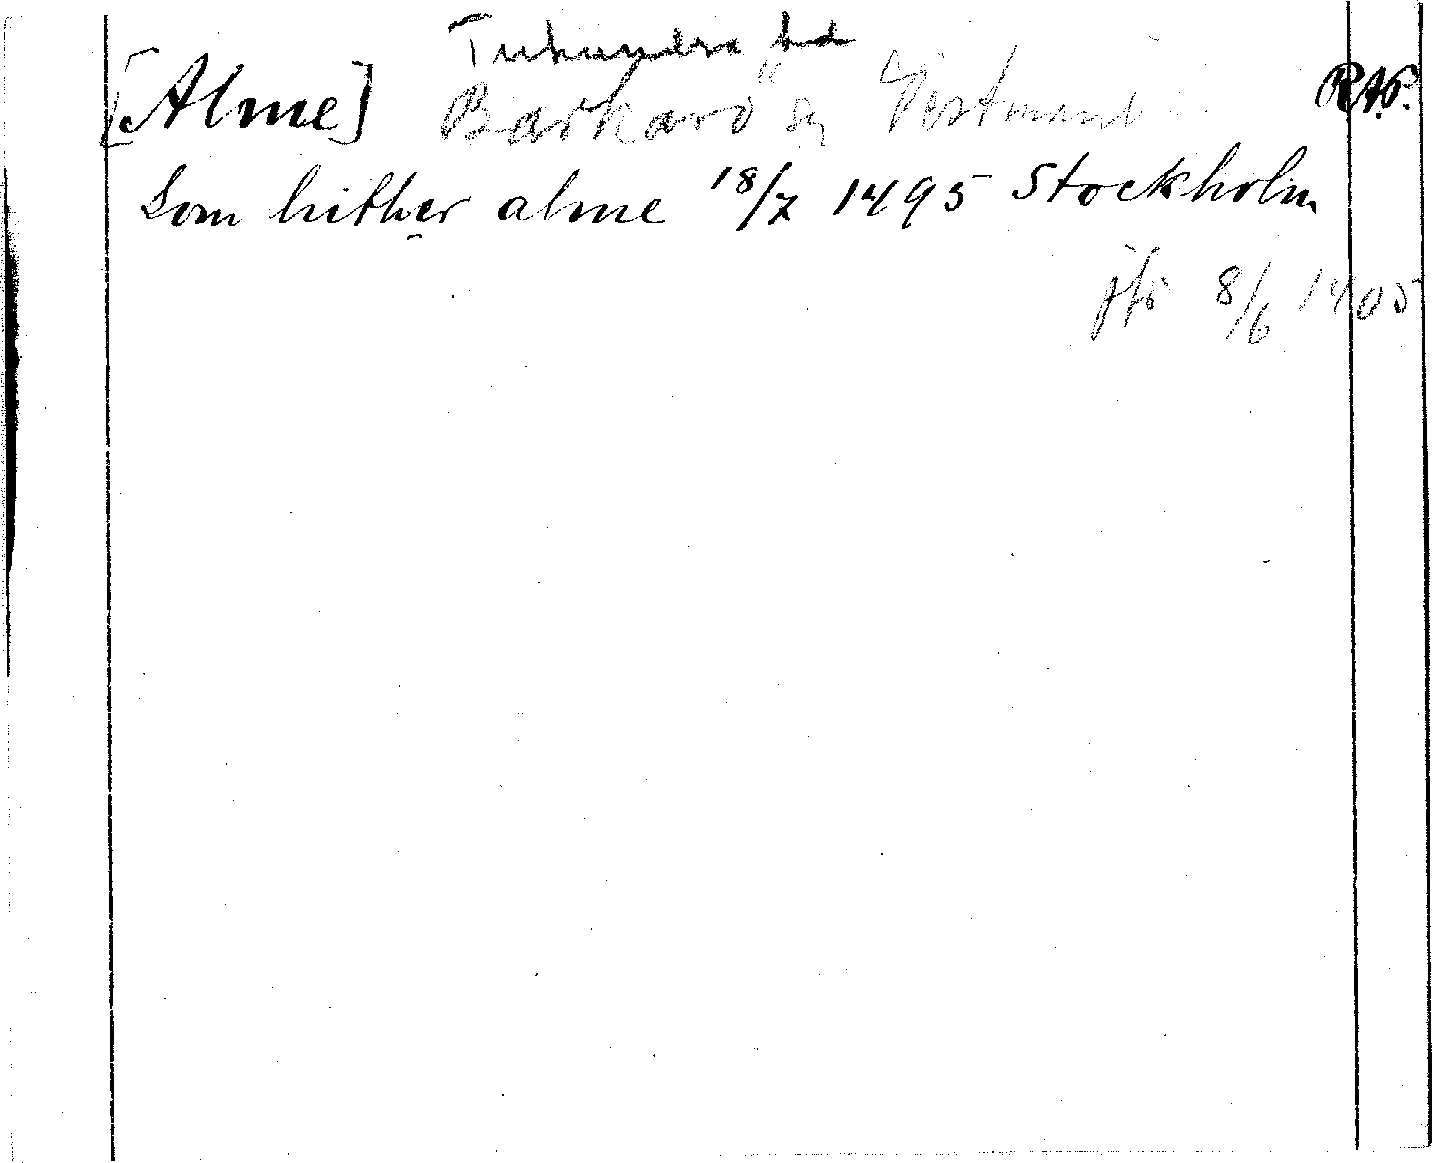 Tuhundra hd
[Alme] Barkarö sn Västmanl RAP.
Som hither alme 18/7 1495 Stockholm
jfr 8/6 1405